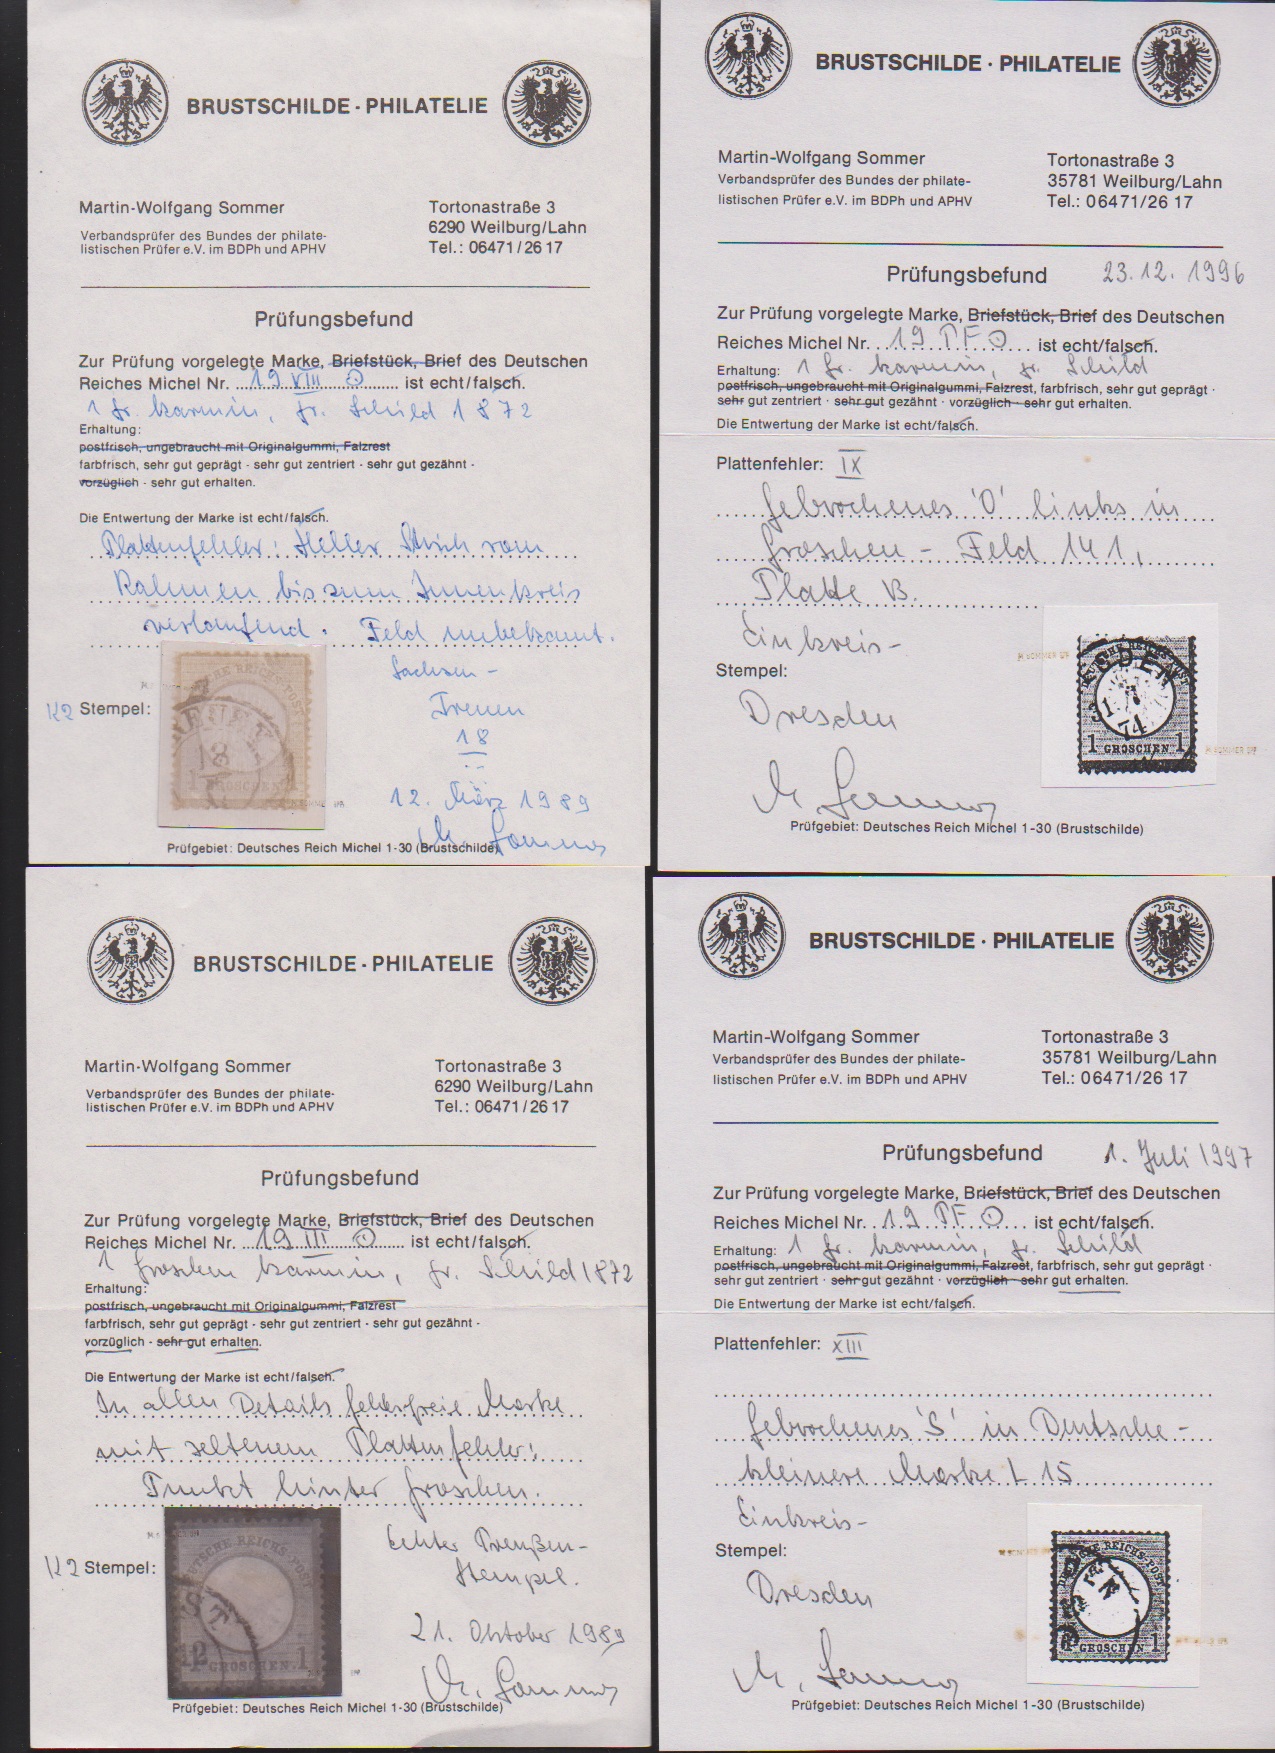 BRUSTSCHILDE - PHILATELIE
Martin-Wolfgang Sommer
Verbandsprüfer des Bundes der philate-
listischen Prüfer e.V. im BDPh und APHV
Tortonastraße 3
6290 Weilburg/Lahn
Tel.: 06471/26 17
Prüfungsbefund
Zur Prüfung vorgelegte Marke, Briefstück, Brief des Deutschen
Reiches Michel Nr. 19 VIII ⊙ ist echt/falsch.
1 Gr. karmin, gr. Schild 1872
Erhaltung:
postfrisch, ungebraucht mit Originalgummi, Falzrest
farbfrisch, sehr gut geprägt - sehr gut zentriert - sehr gut gezähnt -
vorzüglich - sehr gut erhalten.
Die Entwertung der Marke ist echt/falsch.
Plattenfehler: Heller Strich vom
Rahmen bis zum Innenkreis
verlaufend. Feld unbekannt.
K2 Stempel:
Sachsen -
Treuen
18
12. März 1989
M. Sommer
DEUTSCHE REICHS-POST
18
1 GROSCHEN
Prüfgebiet: Deutsches Reich Michel 1-30 (Brustschilde)
BRUSTSCHILDE · PHILATELIE
Martin-Wolfgang Sommer
Verbandsprüfer des Bundes der philate-
listischen Prüfer e.V. im BDPh und APHV
Tortonastraße 3
35781 Weilburg/Lahn
Tel.: 06471/26 17
Prüfungsbefund 23.12.1996
Zur Prüfung vorgelegte Marke, Briefstück, Brief des Deutschen
Reiches Michel Nr. 19 PF ⊙ ist echt/falsch.
Erhaltung: 1 Gr. karmin, gr. Schild
postfrisch, ungebraucht mit Originalgummi, Falzrest, farbfrisch, sehr gut geprägt ·
sehr gut zentriert · sehr gut gezähnt · vorzüglich - sehr gut erhalten.
Die Entwertung der Marke ist echt/falsch.
Plattenfehler: IX
Gebrochenes 'O' links in
Groschen - Feld 141,
Platte B.
Einkreis-
Stempel:
Dresden
M. Sommer
31
74
1 GROSCHEN 1
Prüfgebiet: Deutsches Reich Michel 1-30 (Brustschilde)
BRUSTSCHILDE - PHILATELIE
Martin-Wolfgang Sommer
Verbandsprüfer des Bundes der philate-
listischen Prüfer e.V. im BDPh und APHV
Tortonastraße 3
6290 Weilburg/Lahn
Tel.: 06471/26 17
Prüfungsbefund
Zur Prüfung vorgelegte Marke, Briefstück, Brief des Deutschen
Reiches Michel Nr. 19 III ⊙ ist echt/falsch.
1 Groschen karmin, gr. Schild 1872
Erhaltung:
postfrisch, ungebraucht mit Originalgummi, Falzrest
farbfrisch, sehr gut geprägt - sehr gut zentriert - sehr gut gezähnt -
vorzüglich - sehr gut erhalten.
Die Entwertung der Marke ist echt/falsch.
In allen Details fehlerfreie Marke
mit seltenem Plattenfehler:
Punkt hinter Groschen.
K2 Stempel:
Echter Preußen-
stempel.
21. Oktober 1989
M. Sommer
DEUTSCHE REICHS-POST
ST
GROSCHEN. 1
Prüfgebiet: Deutsches Reich Michel 1-30 (Brustschilde)
BRUSTSCHILDE · PHILATELIE
Martin-Wolfgang Sommer
Verbandsprüfer des Bundes der philate-
listischen Prüfer e.V. im BDPh und APHV
Tortonastraße 3
35781 Weilburg/Lahn
Tel.: 06471/26 17
Prüfungsbefund 1. Juli 1997
Zur Prüfung vorgelegte Marke, Briefstück, Brief des Deutschen
Reiches Michel Nr. 19 PF ⊙ ist echt/falsch.
Erhaltung: 1 Gr. karmin, gr. Schild
postfrisch, ungebraucht mit Originalgummi, Falzrest, farbfrisch, sehr gut geprägt ·
sehr gut zentriert · sehr gut gezähnt · vorzüglich - sehr gut erhalten.
Die Entwertung der Marke ist echt/falsch.
Plattenfehler: XIII
Gebrochenes 'S' in Deutsche -
kleinere Marke L 15
Einkreis-
Stempel:
Dresden
M. Sommer
REICHS-POST
GROSCHEN 1
Prüfgebiet: Deutsches Reich Michel 1-30 (Brustschilde)